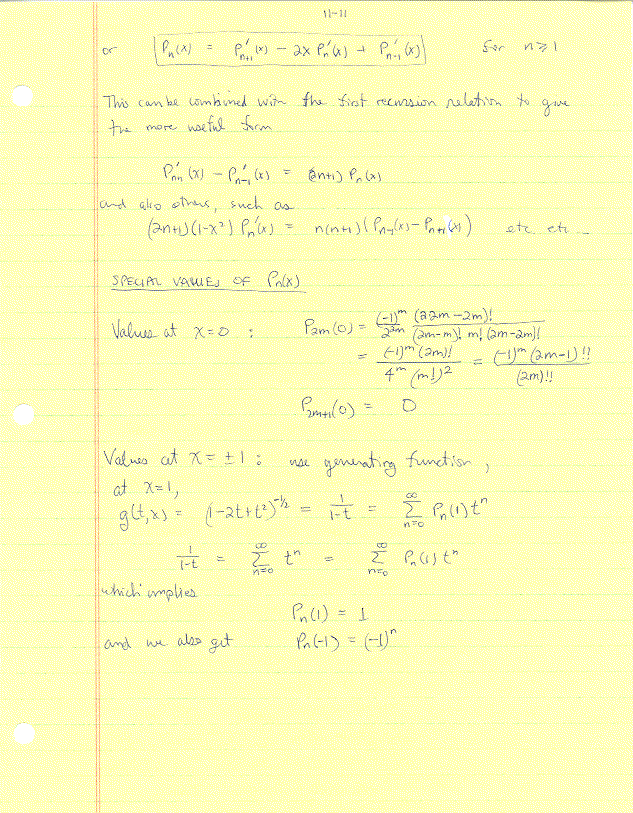 11-11
or P_n(x) = P'_{n+1}(x) - 2x P'_n(x) + P'_{n-1}(x) for n ≥ 1
This can be combined with the first recursion relation to give
the more useful form
P'_{n+1}(x) - P'_{n-1}(x) = (2n+1) P_n(x)
and also others, such as
(2n+1)(1-x²) P'_n(x) = n(n+1)(P_{n-1}(x) - P_{n+1}(x)) etc. etc...
SPECIAL VALUES OF P_n(x)
Values at x=0 : P_{2m}(0) = (-1)^m/2^{2m} (2 2m-2m)!/((2m-m)! m! (2m-2m)!)
= (-1)^m (2m)!/(4^m (m!)²) = (-1)^m (2m-1)!!/(2m)!!
P_{2m+1}(0) = 0
Values at x = ±1 : use generating function,
at x=1,
g(t,x) = (1-2t+t²)^{-1/2} = 1/(1-t) = ∑_{n=0}^{∞} P_n(1) t^n
1/(1-t) = ∑_{n=0}^{∞} t^n = ∑_{n=0}^{∞} P_n(1) t^n
which implies
P_n(1) = 1
and we also get P_n(-1) = (-1)^n